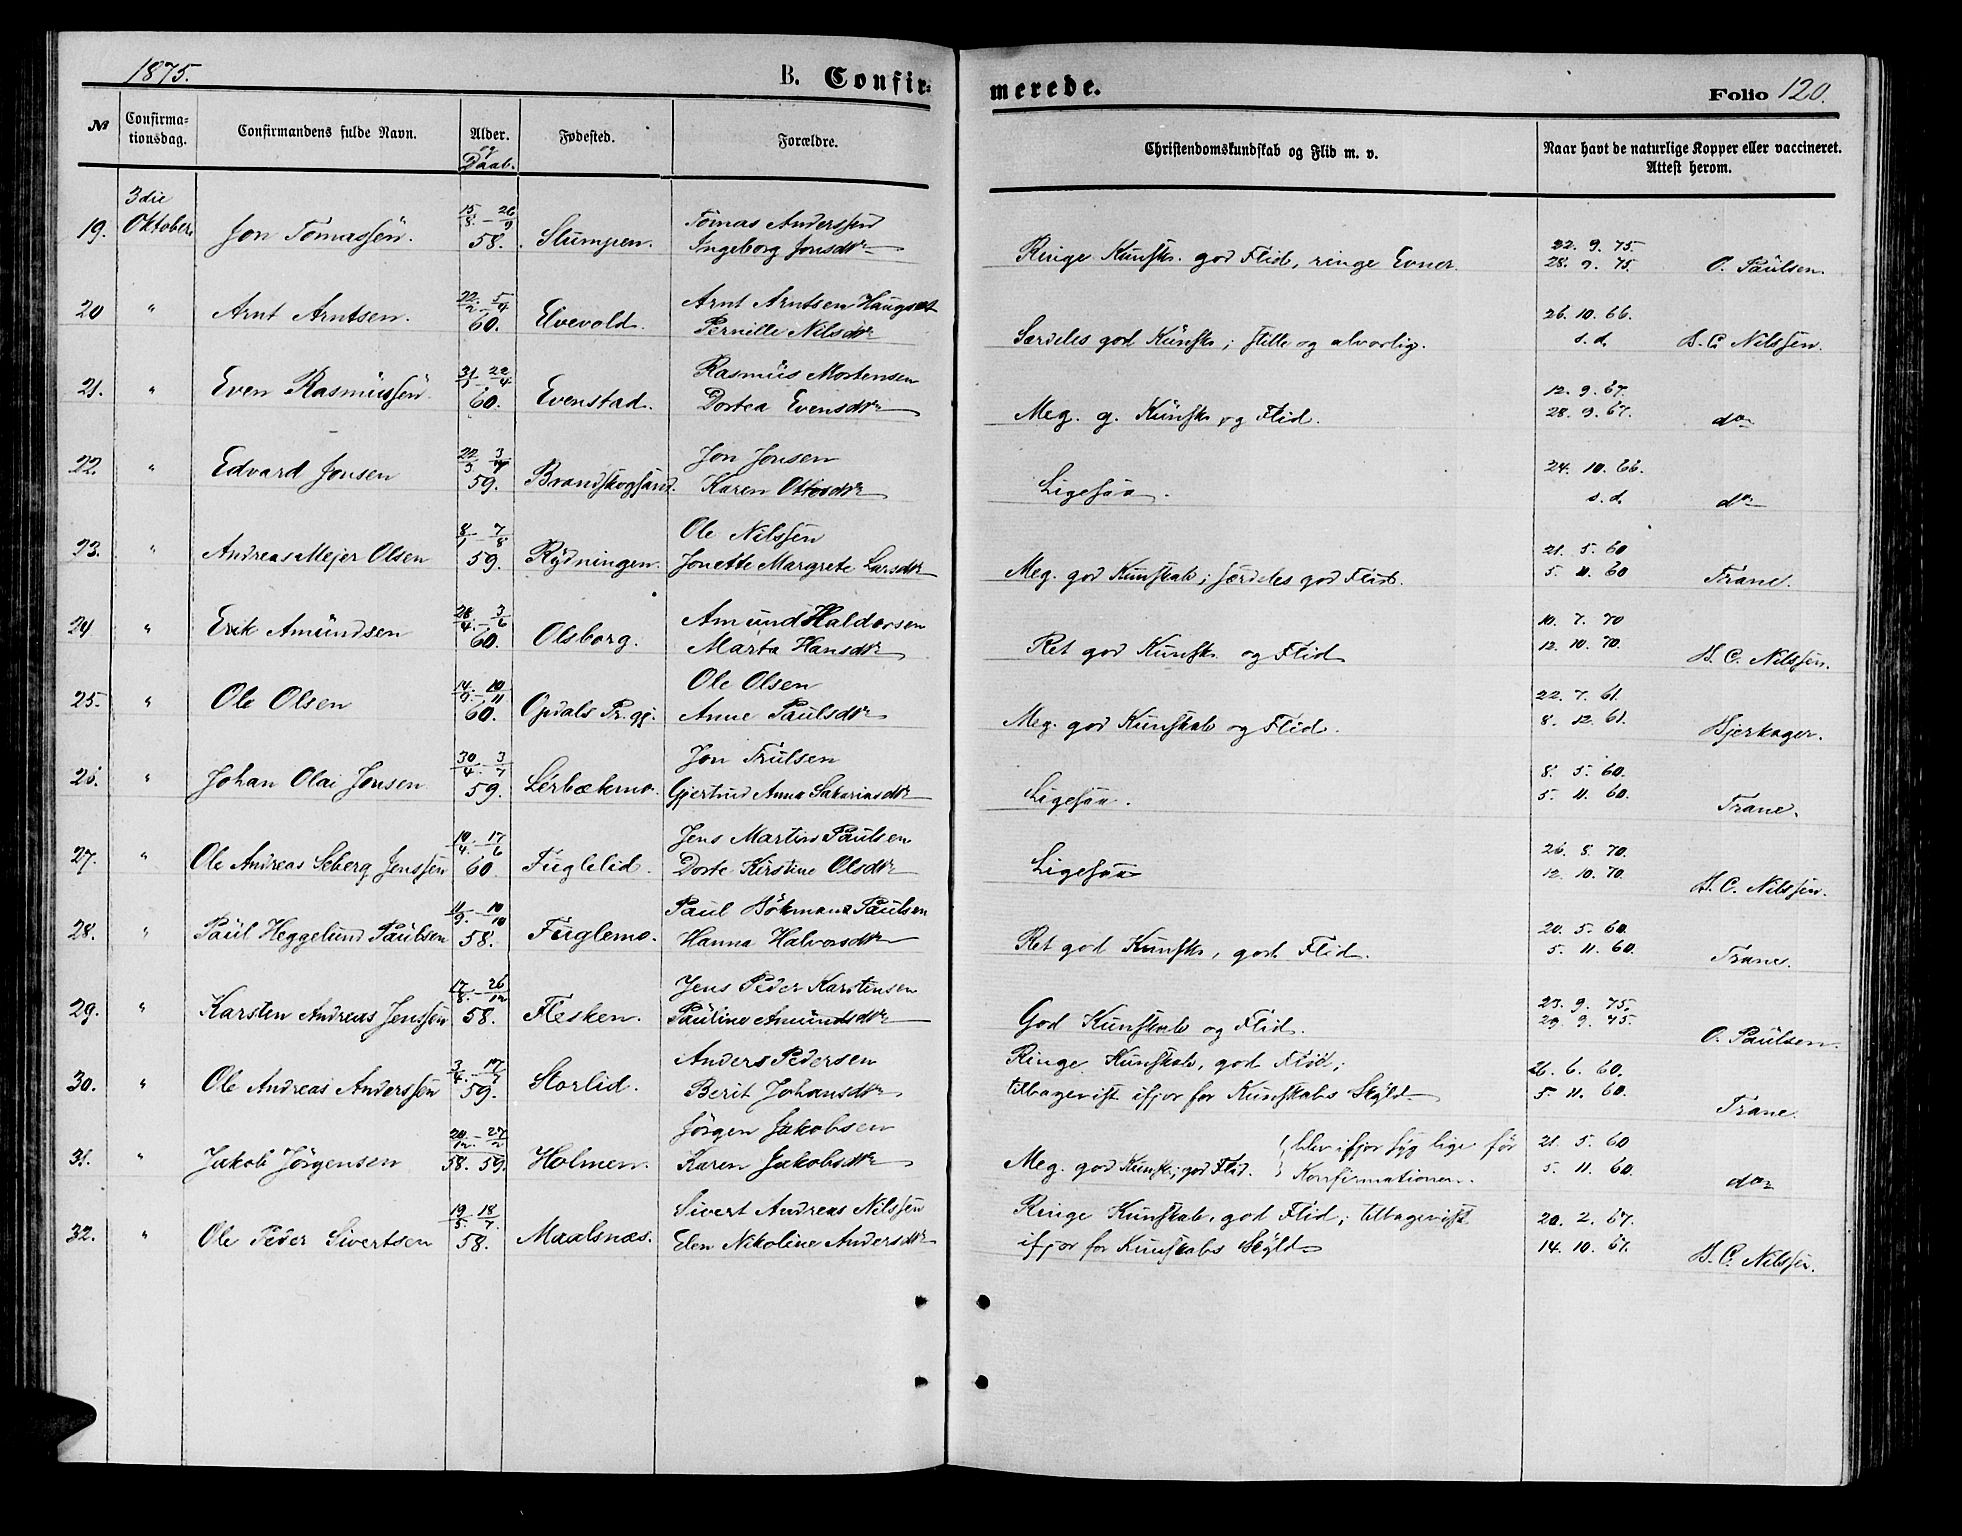 1875.
B. Confir-
merede.
Folio 120.
№
Confirma-
tionsdag.
Confirmandens fulde Navn.
Alder.
og
Daab.
Fødested.
Forældre.
Christendomskundskab og Flid m. v.
Naar havt de naturlige Kopper eller vaccineret.
Attest herom.
3die
19. Oktober. Jon Tomassen. 15/8 - 26/9 58. Slumpen. Tomas Anderssen
Ingeborg Jonsdtr
Ringe Kunsk. god Flid, ringe Evner. 22. 9. 75.
28. 9. 75. O. Paulsen.
20 " Arnt Arntsen. 22/2 - 5/4 60. Elvevold. Arnt Arntsen Haugset
Pernille Nilsdtr
Særdeles god Kunsk; stille og alvorlig. 26. 10. 66.
s. d. H. C. Nilssen.
21. " Even Rasmussen 31/1 - 22/4 60. Evenstad. Rasmus Mortensen
Dortea Evensdtr
Meg. g. Kunsk. og Flid. 12. 9. 67.
28. 9. 67. do
22. " Edvard Jonsen 22/3 - 3/7 59. Brandskogsand. Jon Jonsen
Karen Ottosdtr
Ligesaa. 24. 10. 66.
s. d. do
23. " Andreas Mejer Olsen 8/1 - 7/8 59. Rydningen. Ole Nilssen
Jonette Margrete Larsdtr
Meg. god Kunskab; særdeles god Flid. 21. 5. 60
5. 11. 60 Trane.
24 " Erik Amundsen 28/4 - 3/6 60. Olsborg. Amund Haldorsen
Marta Hansdtr
Ret god Kunsk. og Flid 10. 7. 70
12. 10. 70. H. C. Nilssen.
25. " Ole Olsen 14/9 - 10/11 60. Opdals Pr.gj. Ole Olsen
Anne Paulsdtr
Meg. god Kunskab og Flid. 22. 7. 61.
8. 12. 61. Bjerkager.
26. " Johan Olai Jonsen 30/4 - 3/7 59. Lerbækmo. Jon Trulsen
Gjertrud Anna Sakariasdtr
Ligesaa. 8. 5. 60.
5. 11. 60. Trane.
27. " Ole Andreas Seberg Jenssen 10/4 - 17/6 60 Fuglelid. Jens Martin Paulsen
Dorte Kirstine Olsdtr
Ligesaa 26. 8. 70.
12. 10. 70. H. C. Nilssen.
28. " Paul Heggelund Paulsen 11/9 - 10/10 58. Fuglemo. Paul Bökman Paulsen
Hanna Halvorsdtr
Ret god Kunsk, god Flid. 20. 5. 60.
5. 11. 60. Trane.
29. " Karsten Andreas Jenssen 17/8 - 26/12 58. Flesken. Jens Peder Karstensen
Pauline Amundsdtr
God Kunskab og Flid. 23. 9. 75.
29. 9. 75. O. Paulsen.
30. " Ole Andreas Anderssen 3/4 - 17/7 59. Storlid. Anders Pedersen
Berit Johansdtr
Ringe Kunskab, god Flid;
tilbagevist ifjor for Kunskabs Skyld 26. 6. 60.
5. 11. 60. Trane.
31. " Jakob Jörgensen 20/12 - 27/2 58. 59. Holmen. Jörgen Jakobsen
Karen Jakobsdtr
Meg. god Kunsk; god Flid. blev ifjor syg lige för
Konfirmationen. 21. 5. 60
5. 11. 60. do
32. " Ole Peder Sivertsen 19/5 - 18/7 58. Maalsnæs. Sivert Andreas Nilssen
Elen Nikoline Andersdtr
Ringe Kunskab, god Flid; tilbagevist
ifjor for Kunskabs Skyld 20. 2. 67.
14. 10. 67. H. C. Nilssen.